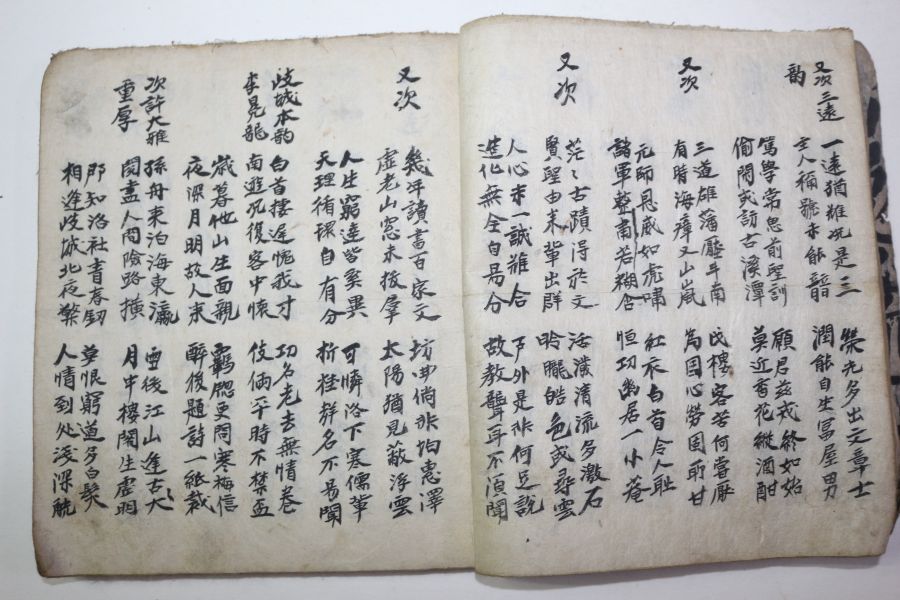 又次三遠
韵
一遠猶難况是三 集先多出文章士
主人稱號本能諳 潤能自生冨屋男
篤學常思前聖訓 願君玆戒終如始
偷閒或訪古溪潭 莫近看花縱酒酣
又次
三道雄藩壓斗南 戍樓客苦何當厭
有時海瘴又山嵐 為國心勞固所甘
元帥恩威如虎嘯 紅衣白首令人耻
諸軍若糊含 恒功幽居一小菴
又次
茫〻古蹟得於文 活潑清流多激石
賢聖由来輩出群 昤朧皓色或尋雲
人心未一誠難合 戶外是非何足說
造化無全自易分 故教聾耳不須聞
又次
幾年讀書百家文 坊曲倘非均惠澤
虛老山窓未拔羣 太陽猶見蔽浮雲
人生窮達皆奚異 可憐洛下寒儒輩
天理循環自有分 折桂群名不易聞
岐城本韵
李晃龍
白首棲遲愧我才 功名老去無情卷
南遊况復客中懷 伎倆平時不禁盃
歲暮他山生面親 更問寒梅信
夜深月明故人来 醉後題詩一紙裁
次許大雅
重厚
孫舟来泊海東瀛 雪後江山逢古大
閱盡人間險路橫 月中樓閣生虛明
那知洛社青春釰 草恨窮道多白髮
相逢岐城北夜檠 人情到处淺深觥